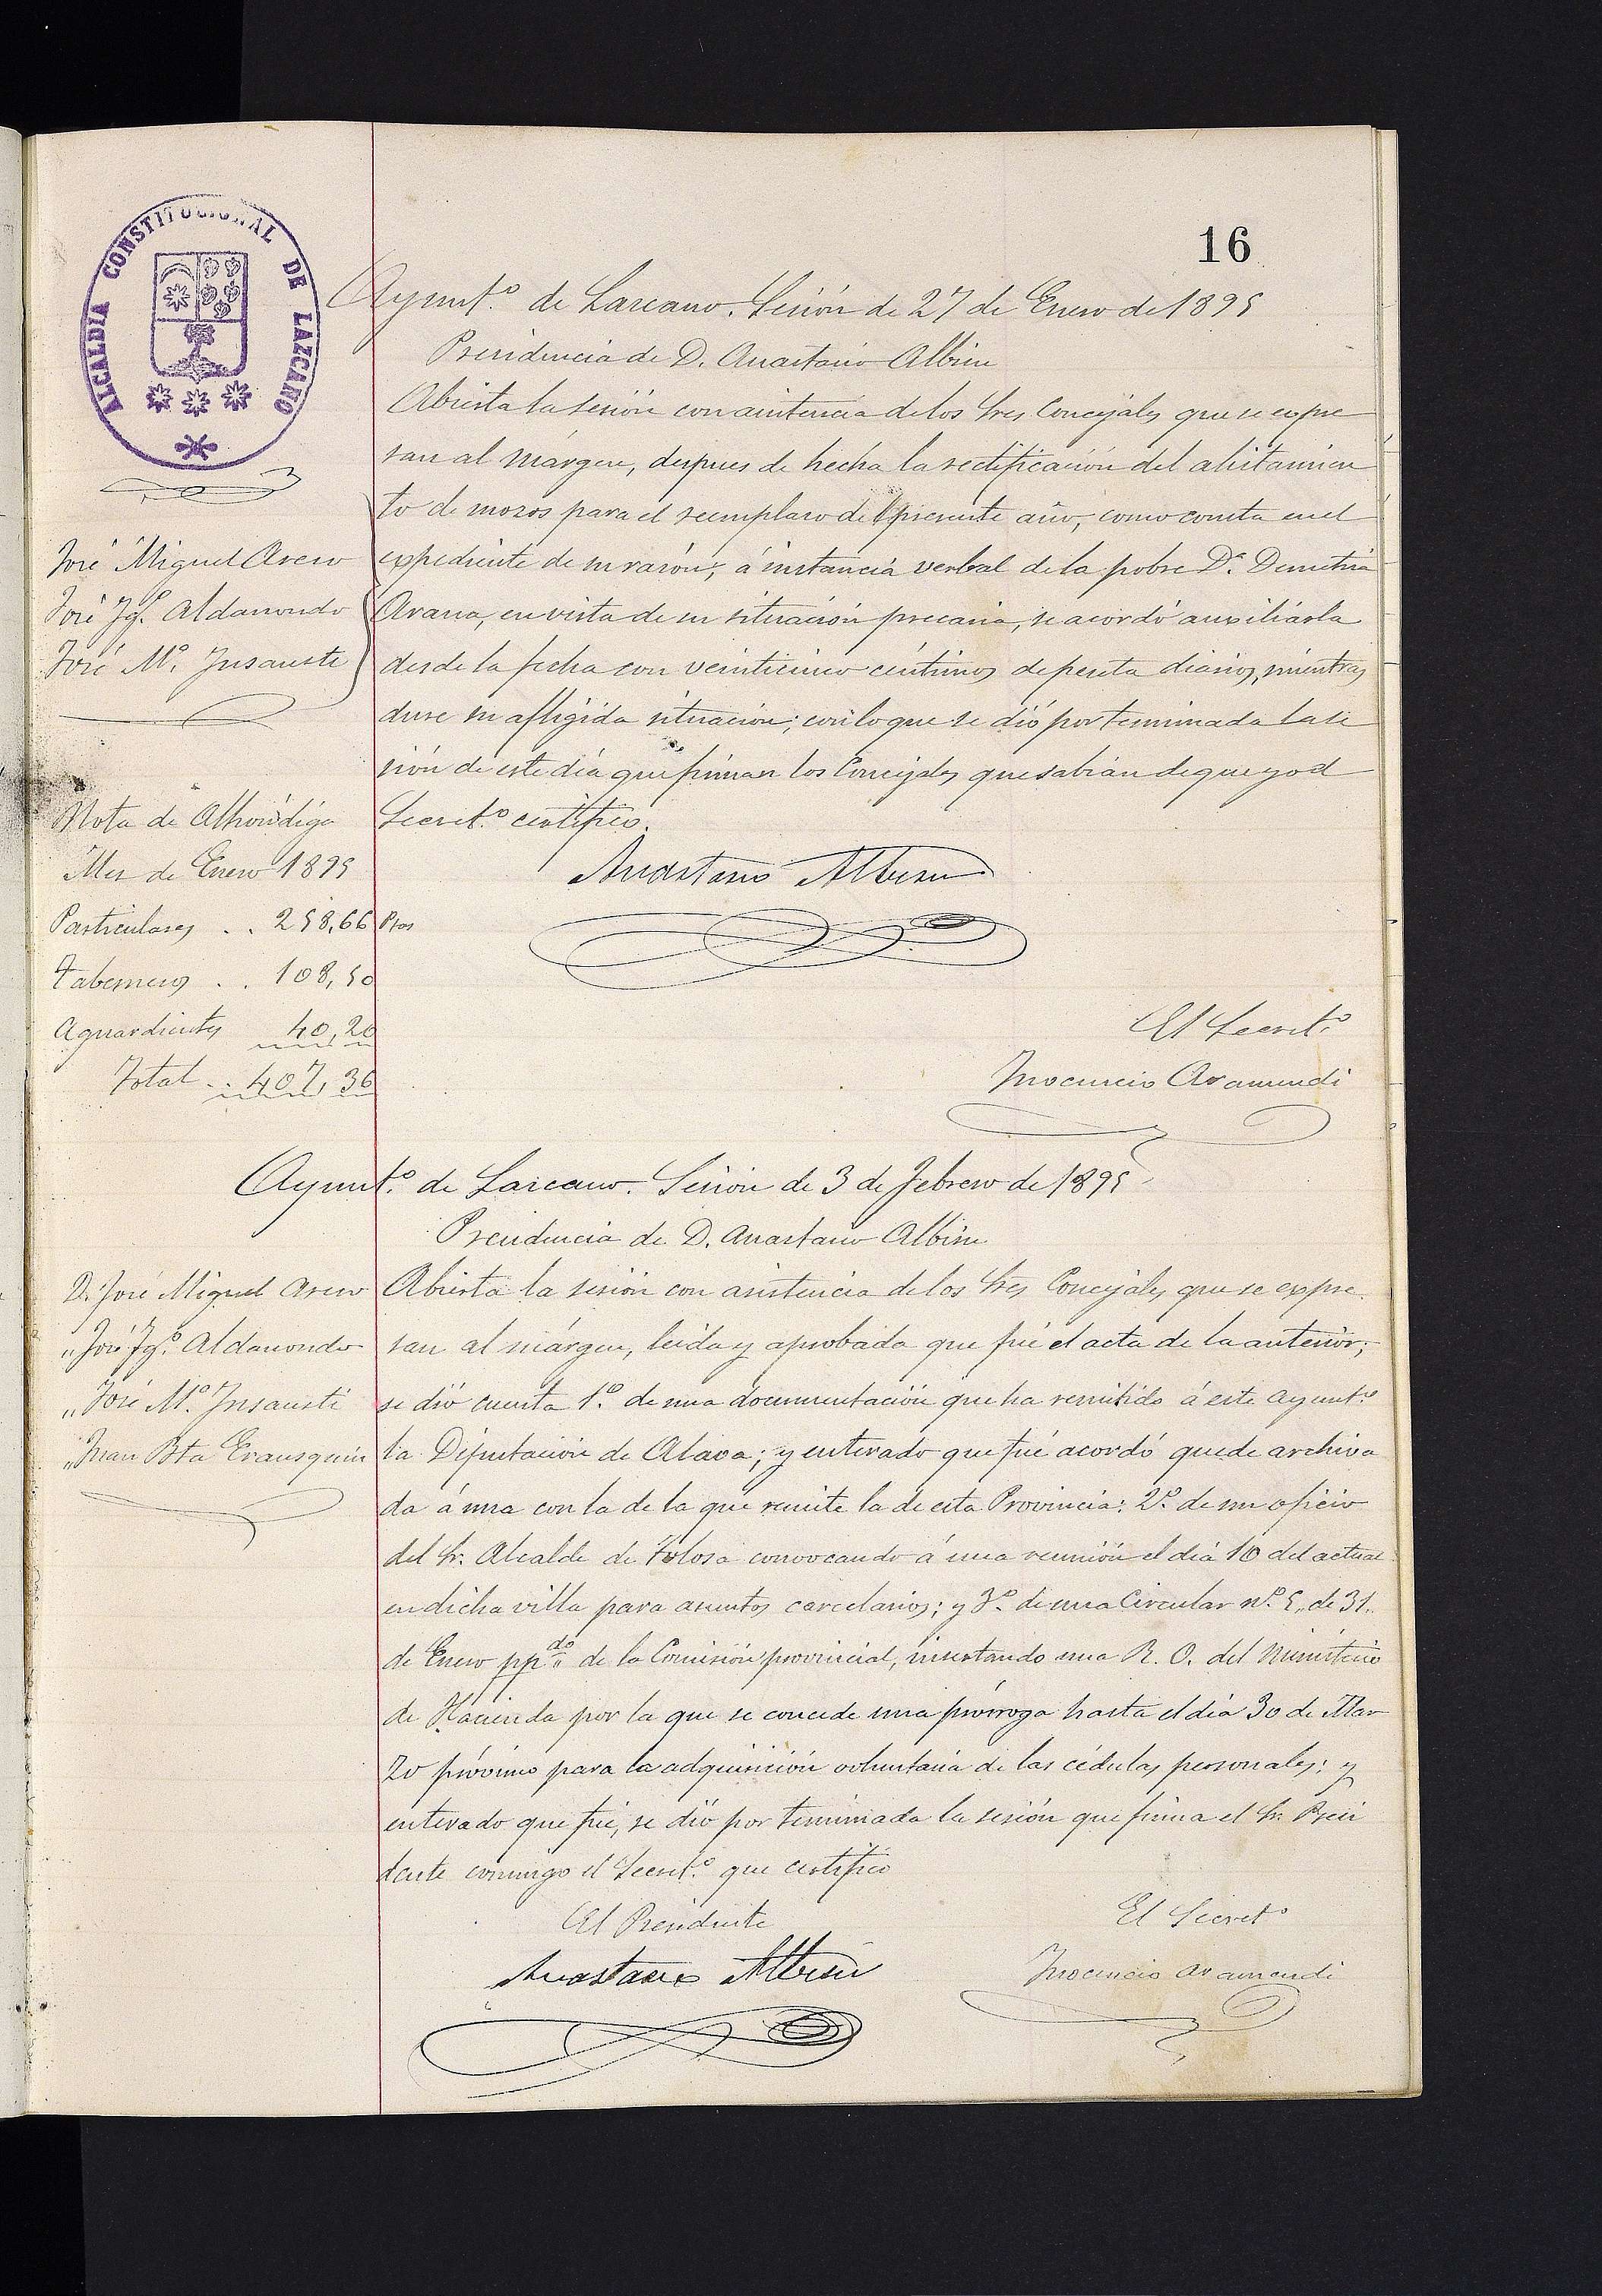 16
ALCALDIA CONSTITUCIONAL DE LAZCANO
Ayunt.º de Lazcano. Sesión de 27 de Enero de 1895
Presidencia de D. Anastasio Albisu
Abierta la sesión con asistencia de los Sres Concejales que se expre
san al márgen, despues de hecha la rectificación del alistamien
to de mozos para el reemplazo del presente año, como consta en el
expediente de su razón; á instancia verbal de la pobre Dª. Demetria
Arana, en vista de su situación precaria, se acordó auxiliárla
desde la fecha con veinticinco céntimos de peseta diarios, mientras
dure su afligida situación; con lo que se dió por terminada la se
sión de este día que firman los Concejales que sabían de que yo el
Secret.º certifico.
José Miguel Asero
José Ig.º Aldanondo
José M.ª Insausti
Anastasio Albisu
El Secret.º
Inocencio Aramendi
Nota de Alhóndiga
Mes de Enero 1895
Particulares . . 258,66 Ptas
Taberneros . . 108,50
Aguardientes 40,20
Total . . 407,36
Ayunt.º de Lazcano. Sesión de 3 de Febrero de 1895
Presidencia de D. Anastasio Albisu
D. José Miguel Asero
„ José Ig.º Aldanondo
„ José M.ª Insausti
„ Juan Bta Erausquin
Abierta la sesión con asistencia de los Sres Concejales que se expre
san al márgen, leida y aprobada que fué el acta de la anterior;
se dió cuenta 1.º de una documentación que ha remitido á este Ayunt.º
la Diputación de Alava; y enterado que fué acordó quede archiva
da á una con la de la que remite la de esta Provincia: 2.º de un oficio
del Sr. Alcalde de Tolosa convocando á una reunión el día 10 del actual
en dicha villa para asuntos carcelarios; y 3.º de una Circular nº. 5„ de 31„
de Enero pp.do„ de la Comisión provincial, insertando una R. O. del Ministerio
de Hacienda por la que se concede una prórroga hasta el día 30 de Mar
zo próximo para la adquisición voluntaria de las cédulas personales; y
enterado que fué, se dió por terminada la sesión que firma el Sr. Presi
dente conmigo el Secret.º que certifico
El Presidente
Anastasio Albisu
El Secret.º
Inocencio Aramendi